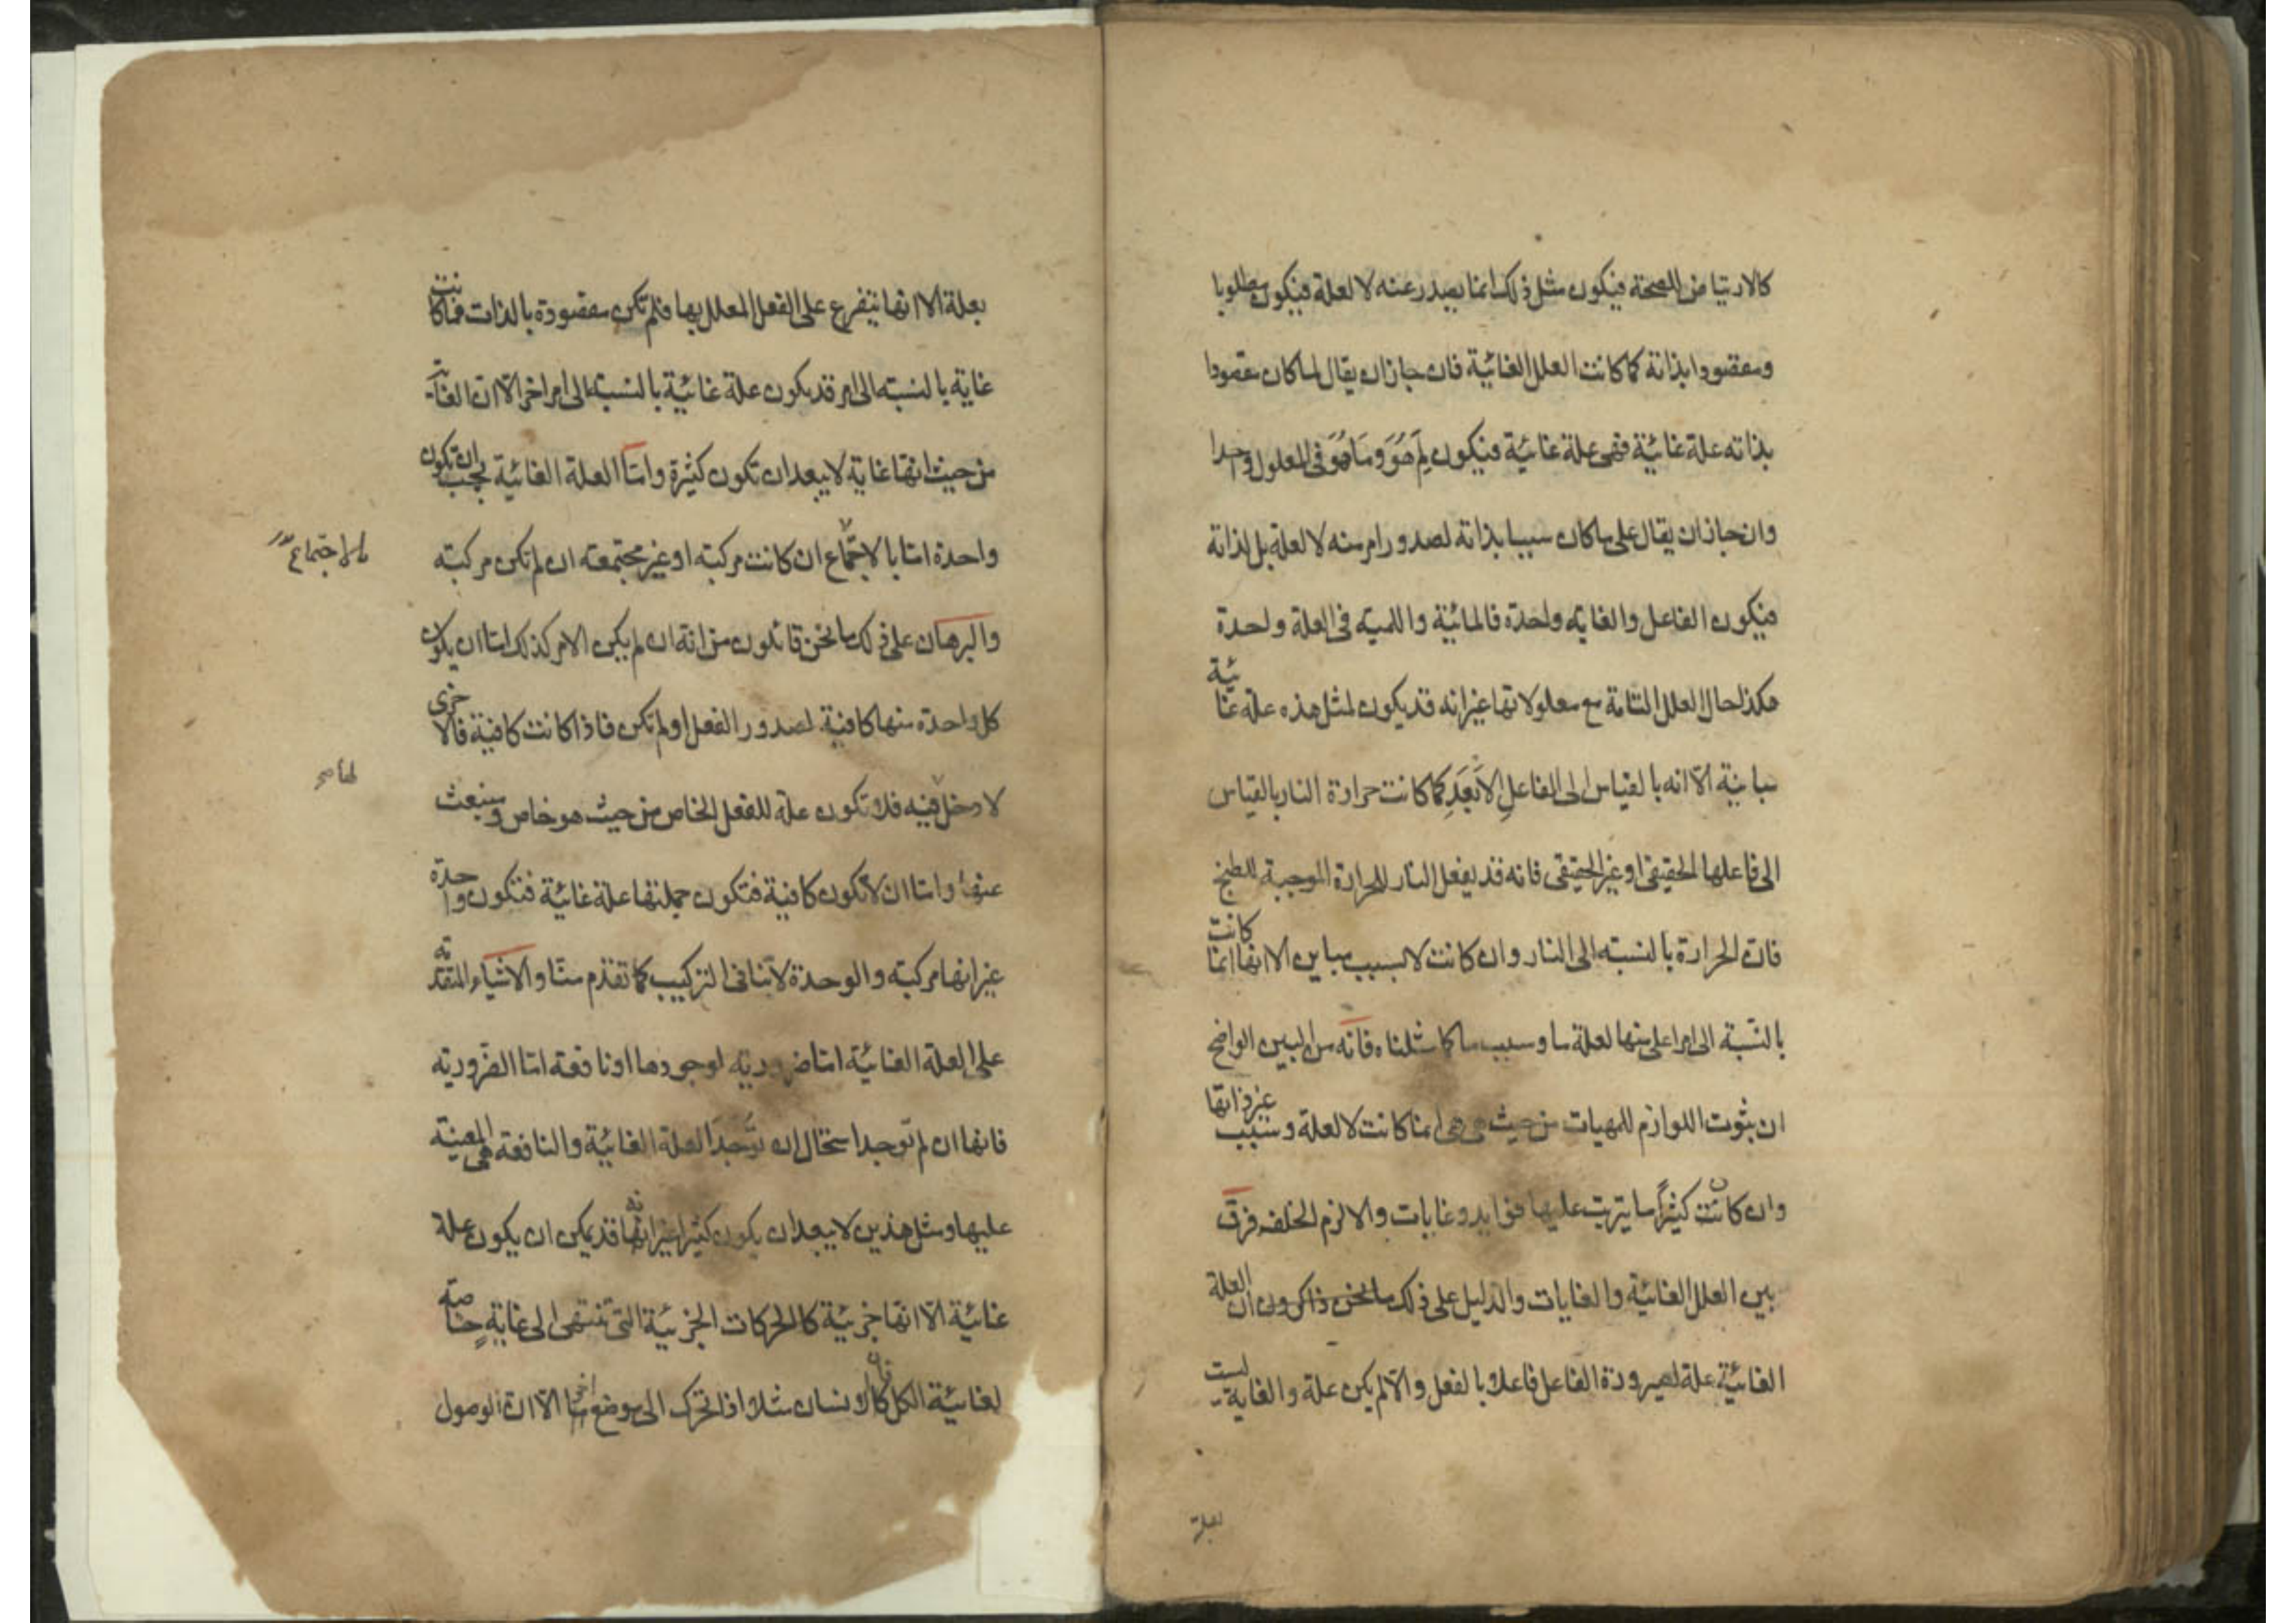 كالارتياض للصحة فيكون مثل ذلك انما يصدر عنه لا لعلة فيكون مطلوبا
ومقصودا بذاته كما كانت العلل الغائية فان جاز ان يقال لما كان مقصودا
بذاته علة غائية فهي علة غائية فيكون لِمَ هُوَ وَمَا هُوَ في المعلول واحدا
وان جاز ان يقال على ما كان سببا بذاته لصدور امر منه لا لعلة بل لذاته
فيكون الفاعل والغاية واحدة فالمائية واللمية في العلة واحدة
هكذا حال العلل التامة مع معلولاتها غير انه قد يكون لمثل هذه علة غائية
مباينة الّا انه بالقياس الى الفاعلِ الاَبعَدِ كما كانت حرارة النار بالقياس
الى فاعلها الحقيقي او غير الحقيقي فانه قد يفعل النار للحرارة الموجبة للطبخ
فان الحرارة بالنسبة الى النار وان كانت لا لسبب مباين الا انها انما كانت
بالنسبة الى امر اعلى منها لعلة ما وسبب ما كما مثلناه فانه من البين الواضح
ان ثبوت اللوازم للمهيات من حيث هي هي انما كانت لا لعلة وسبب غير ذاتها
وان كانت كثيراً ما يترتب عليها فوايد وغايات والا لزم الخلف فرق
بين العلل الغائية والغايات والدليل على ذلك ما نحن ذاكرون ان العلة
الغائية علة لصيرورة الفاعل فاعلا بالفعل والّا لم يكن علة والغاية ليست
لعلة
بعلة الا انها يتفرع على الفعل المعلل بها فلم تكن مقصودة بالذات فما كانت
غاية بالنسبة الى امر قد يكون علة غائية بالنسبة الى امر اخر الّا ان الغاية
من حيث انها غاية لا يبعد ان تكون كثيرة وامّا العلة الغائية يجب ان تكون
واحدة امّا بالاجتماع ان كانت مركبة او غير مجتمعة ان لم تكن مركبة
بالاجتماع
والبرهان على ذلك ما نحن قائلون من انه ان لم يكن الامر كذلك امّا ان يكون
كل واحدة منها كافية لصدور الفعل او لم تكن فاذا كانت كافية فالاخرى
لا دخل فيه فلا تكون علة للفعل الخاص من حيث هو خاص ومنبعث
لها صح
عنها وامّا ان لا تكون كافية فتكون جملتها علة غائية فتكون واحدة
غير انها مركبة والوحدة لا تنافى التركيب كما تقدم منّا والاشياء المتقدمة
على العلة الغائية امّا ضرورية لوجودها او نافعة امّا الضرورية
فانها ان لم توجد استحال ان تُوجَدَ العلة الغائية والنافعة هي المعينة
عليها ومثل هذين لا يبعد ان يكون كثيرا غير انها قد يمكن ان يكون علة
غائية الّا انها جزئية كالحركات الجزئية التي تنتهى الى غايةٍ خاصة
لغائية الكل فان الانسان مثلا اذا تحرك الى موضع ما الّا ان الوصول